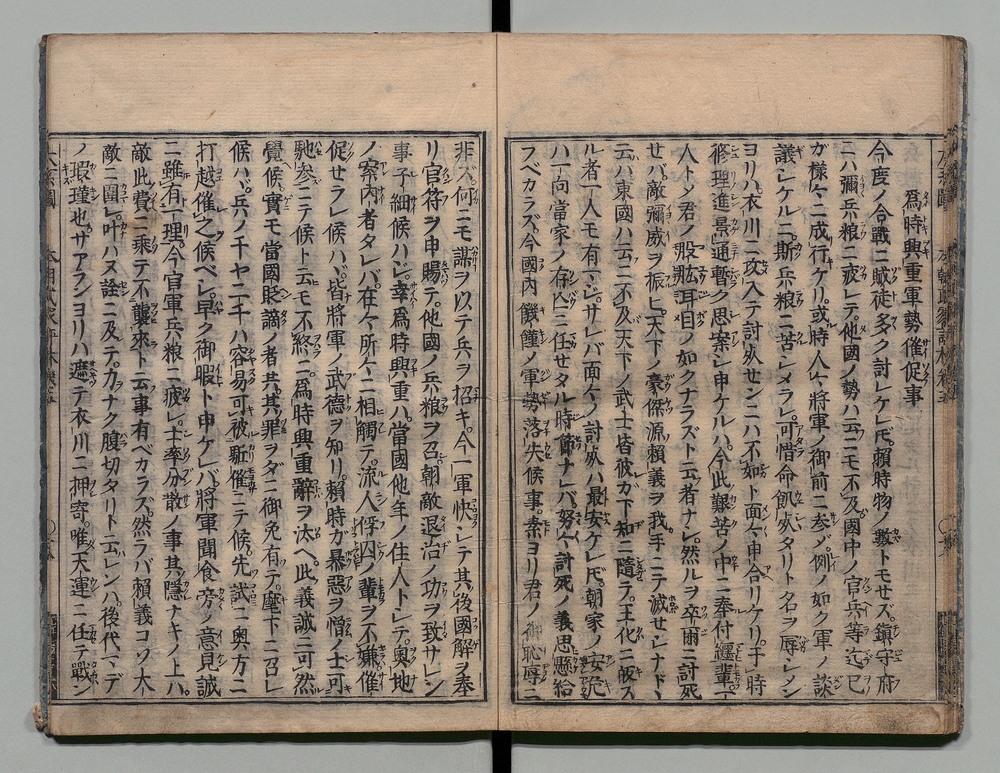 爲時興重軍勢催促事
今度ノ合戰ニ賊徒多ク討レケレ𪜈賴時物ノ數トモセズ鎮守府
ニハ彌兵粮ニ疲レテ他國ノ勢ハ云ニモ不及國中ノ官兵等迄已
ガ樣々ニ成行ケリ或時人々將軍ノ御前ニ参ノ例ノ如ク軍ノ談
議シケルニ斯兵粮ニ苦シメラレ可惜命飢死タリト名ヲ辱シメン
ヨリハ衣川ニ攻入テ討死センニハ不如ト面々申合リケリ于時
修理進景通暫ク思案シ申ケルハ今此艱苦ノ中ニ奉付纒輩
人トメ君ノ股肱耳目ノ如クナラズト云者ナシ然ルヲ卒爾ニ討死
セバ敵彌威ヲ振ヒ天下ノ豪傑源賴義ヲ我手ニテ滅セシナド
云ハ東國ハ云ニ不及天下ノ武士皆彼カ下知ニ隨テ王化ニ服ス
ル者一人モ有マジサレバ面々ノ討死ハ最安ケレ𪜈朝家ノ安危
ハ一向當家ノ存亡ニ任セタル時節ナレバ努々討死ノ義思懸給
フベカラズ今國内饑饉ノ軍勢落失候事素ヨリ君ノ御恥辱ニ
非ズ何ニモ謀ヲ以テ兵ヲ招キ今一軍快シテ其後國解ヲ奉
リ官符ヲ申賜テ他國ノ兵粮ヲ召朝敵退治ノ功ヲ致サレン
事子細候ハジ幸爲時興重ハ當國他年ノ住人トシテ奥地
ノ案内者タレバ在々所々ニ相觸テ流人俘囚ノ輩ヲ不嫌催
促セラレ候ハヾ皆將軍ノ武德ヲ知リ賴時ガ暴惡ヲ憎ノ士可
馳参ニテ候ト云モ不終ニ爲時興重辭ヲ汰ヘ此義誠ニ可然
覺候實モ當國貶謫ノ者共其罪ヲダニ御免有テ麾下ニ召レ
候ハヾ兵ノ千ヤ二千ハ容易可被駈催ニテ候先試ニ奥方ニ
打越催之候ベシ早ク御暇ト申ケレバ將軍聞食旁ノ意見誠
ニ雖有一理今官軍兵粮ニ疲レ士卒分散ノ事其隱ナキノ上ハ
敵此費ニ乘テ不襲來ト云事有ベカラズ然ラバ賴義コソ大
敵ニ圍レ叶ハヌ詮ニ及テ力ナク腹切タリト云レンハ後代マデ
ノ瑕瑾也サアランヨリハ遮テ衣川ニ押寄唯天運ニ任テ戰ン